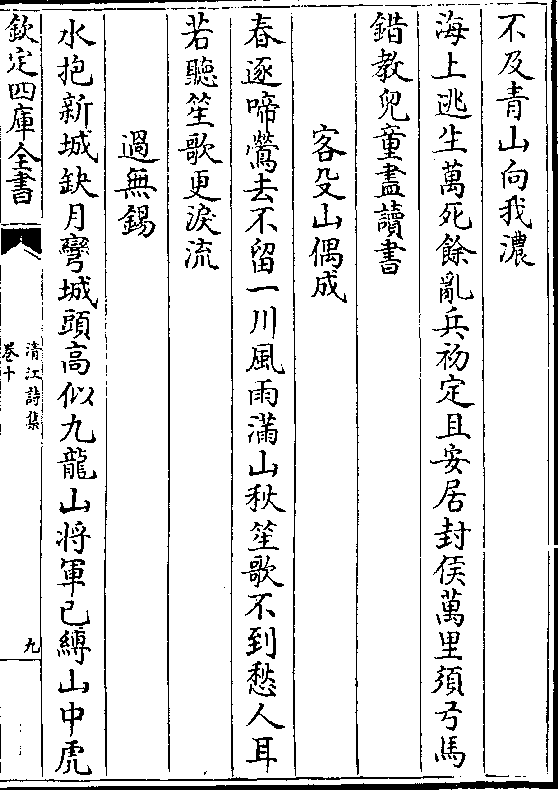 不及青山向我濃
海上逃生萬死餘亂兵初定且安居封侯萬里須弓馬
錯教兒童盡讀書
客殳山偶成
春逐啼鶯去不留一川風雨滿山秋笙歌不到愁人耳
若聽笙歌更淚流
過無錫
水抱新城缺月彎城頭高似九龍山將軍已縛山中虎
欽定四庫全書
清江詩集
卷十
九